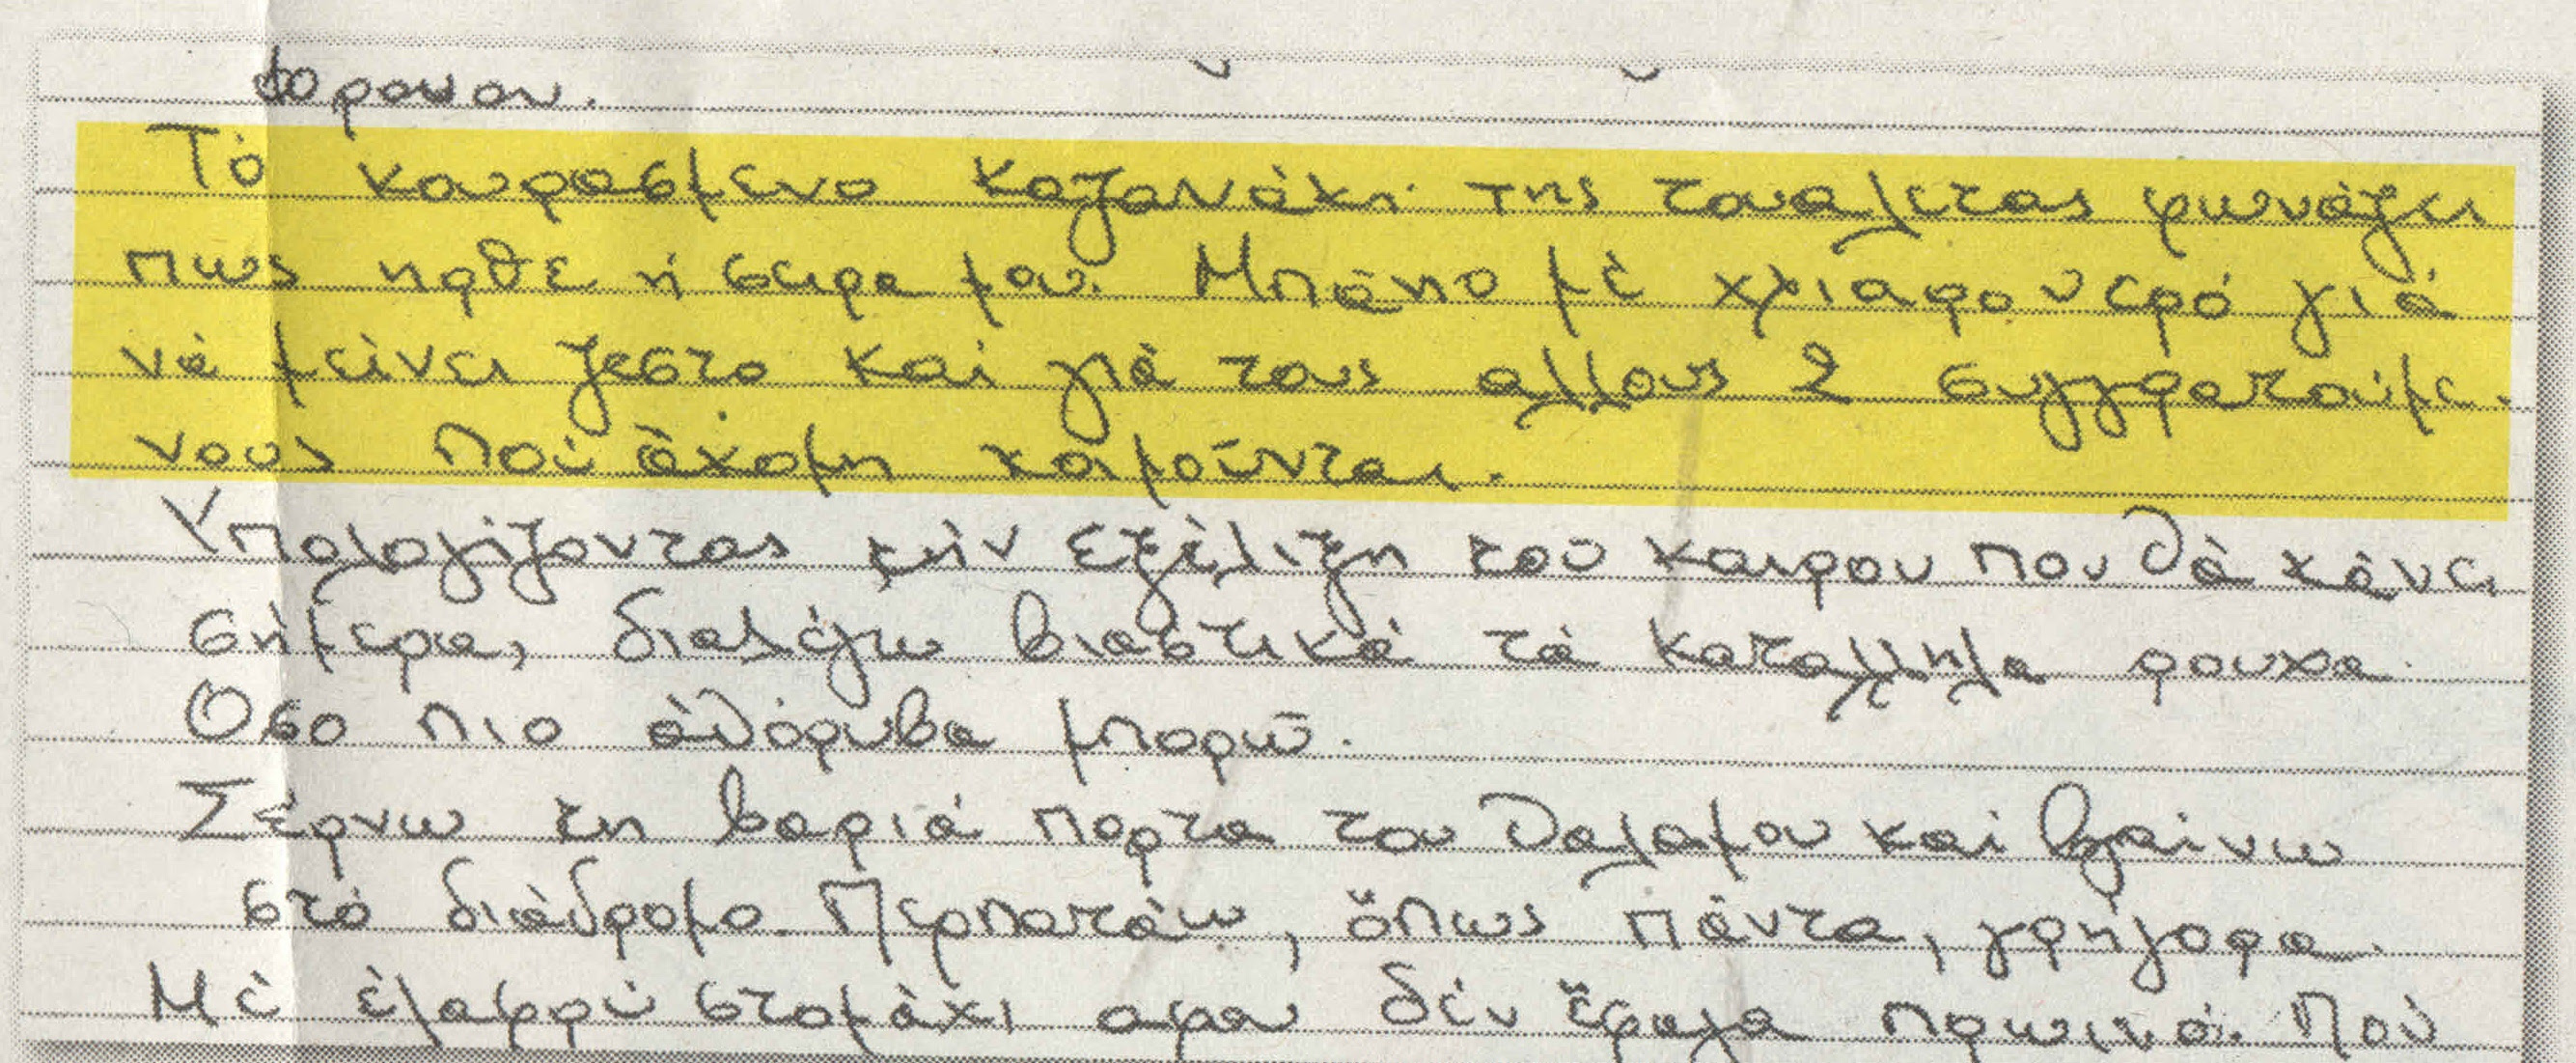 φρονον.
Τό κουρασμενο καζανάκι της τουαλετας φωνάζει
πως ηρθε ή σειρα μου. Μπάνιο μέ χλιαρο νερό γιά
νά μείνει ζεστο καί γιά τους αλλους 2 συγγρατούμε-
νους πού άκομη κοιμούνται.
Υπολογίζοντας τήν εξέλιξη τού καιρου που θά κάνει
σήμερα, διαλέγω βιαστικά τά καταλληλα ρουχα.
Οσο πιο άθόρυβα μπορω̃.
Σέρνω τη βαριά πορτα του θαλαμου καί βγαίνω
στό διάδρομο. Περπατάω, όπως πάντα, γρήγορα.
Μέ έλαφρύ στομάχι αφου δέν έφαγα πρωινό. Πού